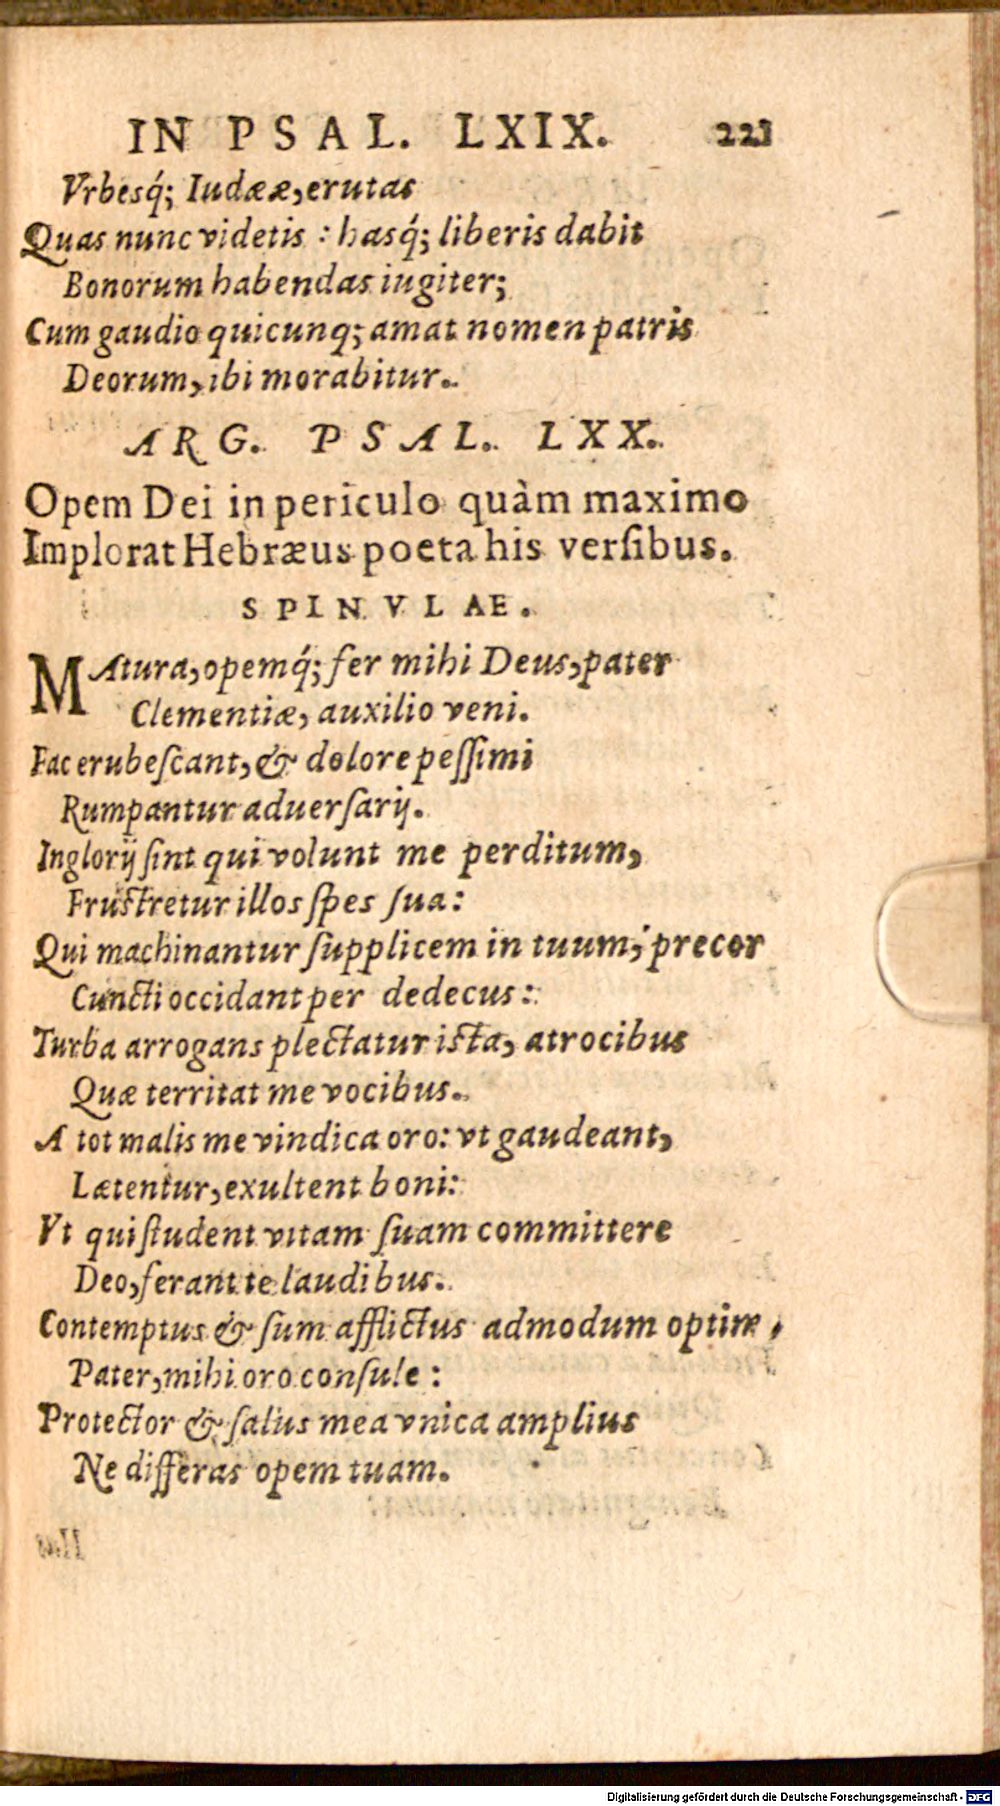 IN PSAL. LXIX. 221
Vrbesq́; Iudææ, erutas
Quas nunc videtis : hasq́; liberis dabit
Bonorum habendas iugiter;
Cum gaudio quicunq; amat nomen patris
Deorum, ibi morabitur.
ARG. PSAL. LXX.
Opem Dei in periculo quàm maximo
Implorat Hebræus poeta his verſibus.
SPINVLAE.
MAtura, opemq́; fer mihi Deus, pater
Clementiæ, auxilio veni.
Fac erubeſcant, & dolore peſſimi
Rumpantur aduerſarij.
Inglorij ſint qui volunt me perditum,
Fruſtretur illos ſpes ſua:
Qui machinantur ſupplicem in tuum, precor
Cuncti occidant per dedecus:
Turba arrogans plectatur iſta, atrocibus
Quæ territat me vocibus.
A tot malis me vindica oro: vt gaudeant,
Lætentur, exultent boni:
Vt qui ſtudent vitam ſuam committere
Deo, ferant te laudibus.
Contemptus & ſum afflictus admodum optime,
Pater, mihi oro conſule :
Protector & ſalus mea vnica amplius
Ne differas opem tuam.
Digitalisierung gefördert durch die Deutsche Forschungsgemeinschaft - DFG